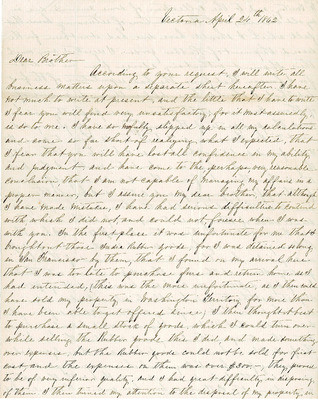 Victoria April 24th 1862
Dear Brother
According to your request, I will write all
business matters upon a separate sheet hereafter. I have
not much to write at present, and the little that I have to write
I fear you will find very unsatisfactory, for it most assuredly
is so to me. I have so slipped up in all my calculations
and come so far short of realizing what I expected, that
I fear that you will have lost all confidence in my ability
and judgment and have come to the perhaps very reasonable
conclusion that I am not capable of managing my affairs in a
proper manner; but I assure you my dear brother, that although
I have made mistakes, I have had serious difficulties to contend
with which I did not and could not foresee when I was
with you. In the first place it was unfortunate for me that I
bought out those India Rubber goods. for I was detained so long
in San Francisco by them, that I found on my arrival here
that I was too late to purchase furs and return home as I
had intended; this was the more unfortunate, as I then could
have sold my property in Washington Territory for more than
I have been able to get offered since; I then thought best
to purchase a small stock of goods, which I could turn over
while selling the Rubber goods this I did, and made something
over expenses. but the Rubber goods could not be sold for first
cost, and the expenses on them was over $300.— They proved
to be of very inferior quality, and I had great difficulty in disposing
of them. I then turned my attention to the disposal of my property, in